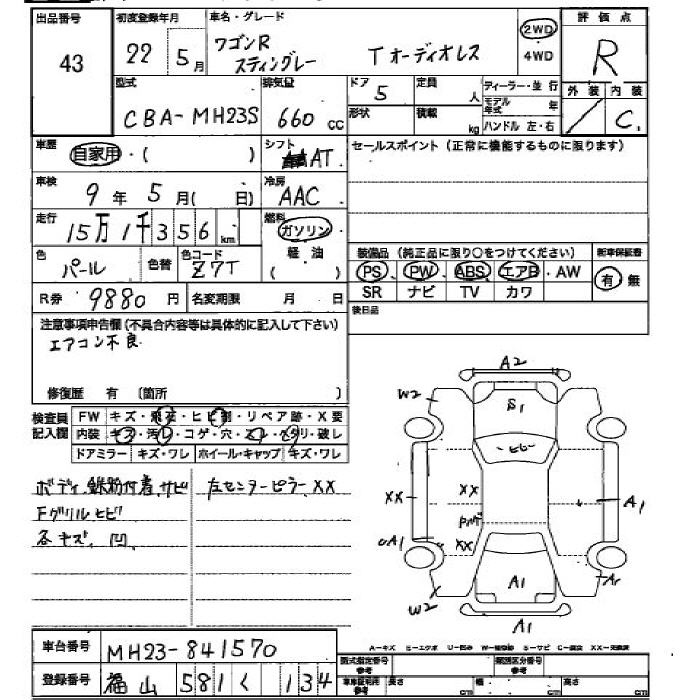 出品番号 初度登録年月 車名・グレード 評価点
43 22 5月 ワゴンR スティングレー Tオーディオレス 2WD 4WD R
型式 排気量 ドア 定員 ディーラー・並行 外装 内装
CBA-MH23S 660 cc 5 人 モデル年式 年 / C
形状 積載 kg ハンドル 左・右
車歴 自家用・( ) シフト AT セールスポイント(正常に機能するものに限ります)
車検 9年5月( 日) 冷房 AAC
走行 15万1千356km 燃料 ガソリン
軽油
( )
色 パール 色替 色コード Z7T
装備品(純正品に限り○をつけてください) 新車保証書
PS・PW・ABS・エアB・AW 有 無
SR ナビ TV カワ
R券 9880円 名変期限 月 日 後日品
注意事項申告欄(不具合内容等は具体的に記入して下さい)
エアコン不良
修復歴 有 (箇所 )
検査員記入欄 FW キズ・飛石・ヒビ割・リペア跡・X要
内装 キズ・汚レ・コゲ・穴・スレ・ヘタリ・破レ
ドアミラー キズ・ワレ ホイール・キャップ キズ・ワレ
ボディ 鉄粉付着、サビ 左センターピラーXX
Fグリルヒビ
各キズ、凹
A2
W2 S1
ヒビ
XX XX A1
XX
A1 A1
W2 A1
A1
A-キズ E-エクボ U-凹み W-補修跡 S-サビ C-腐食 XX-交換済
車台番号 MH23-841570
登録番号 福山 581 く 134
型式指定番号 参考 類別区分番号 参考
車庫証明用 参考 長さ cm 幅 cm 高さ cm